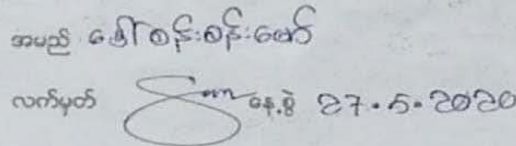 အမည် ဒေါ်စန်းစန်းမော်
လက်မှတ် နေ့စွဲ 27.5.2020